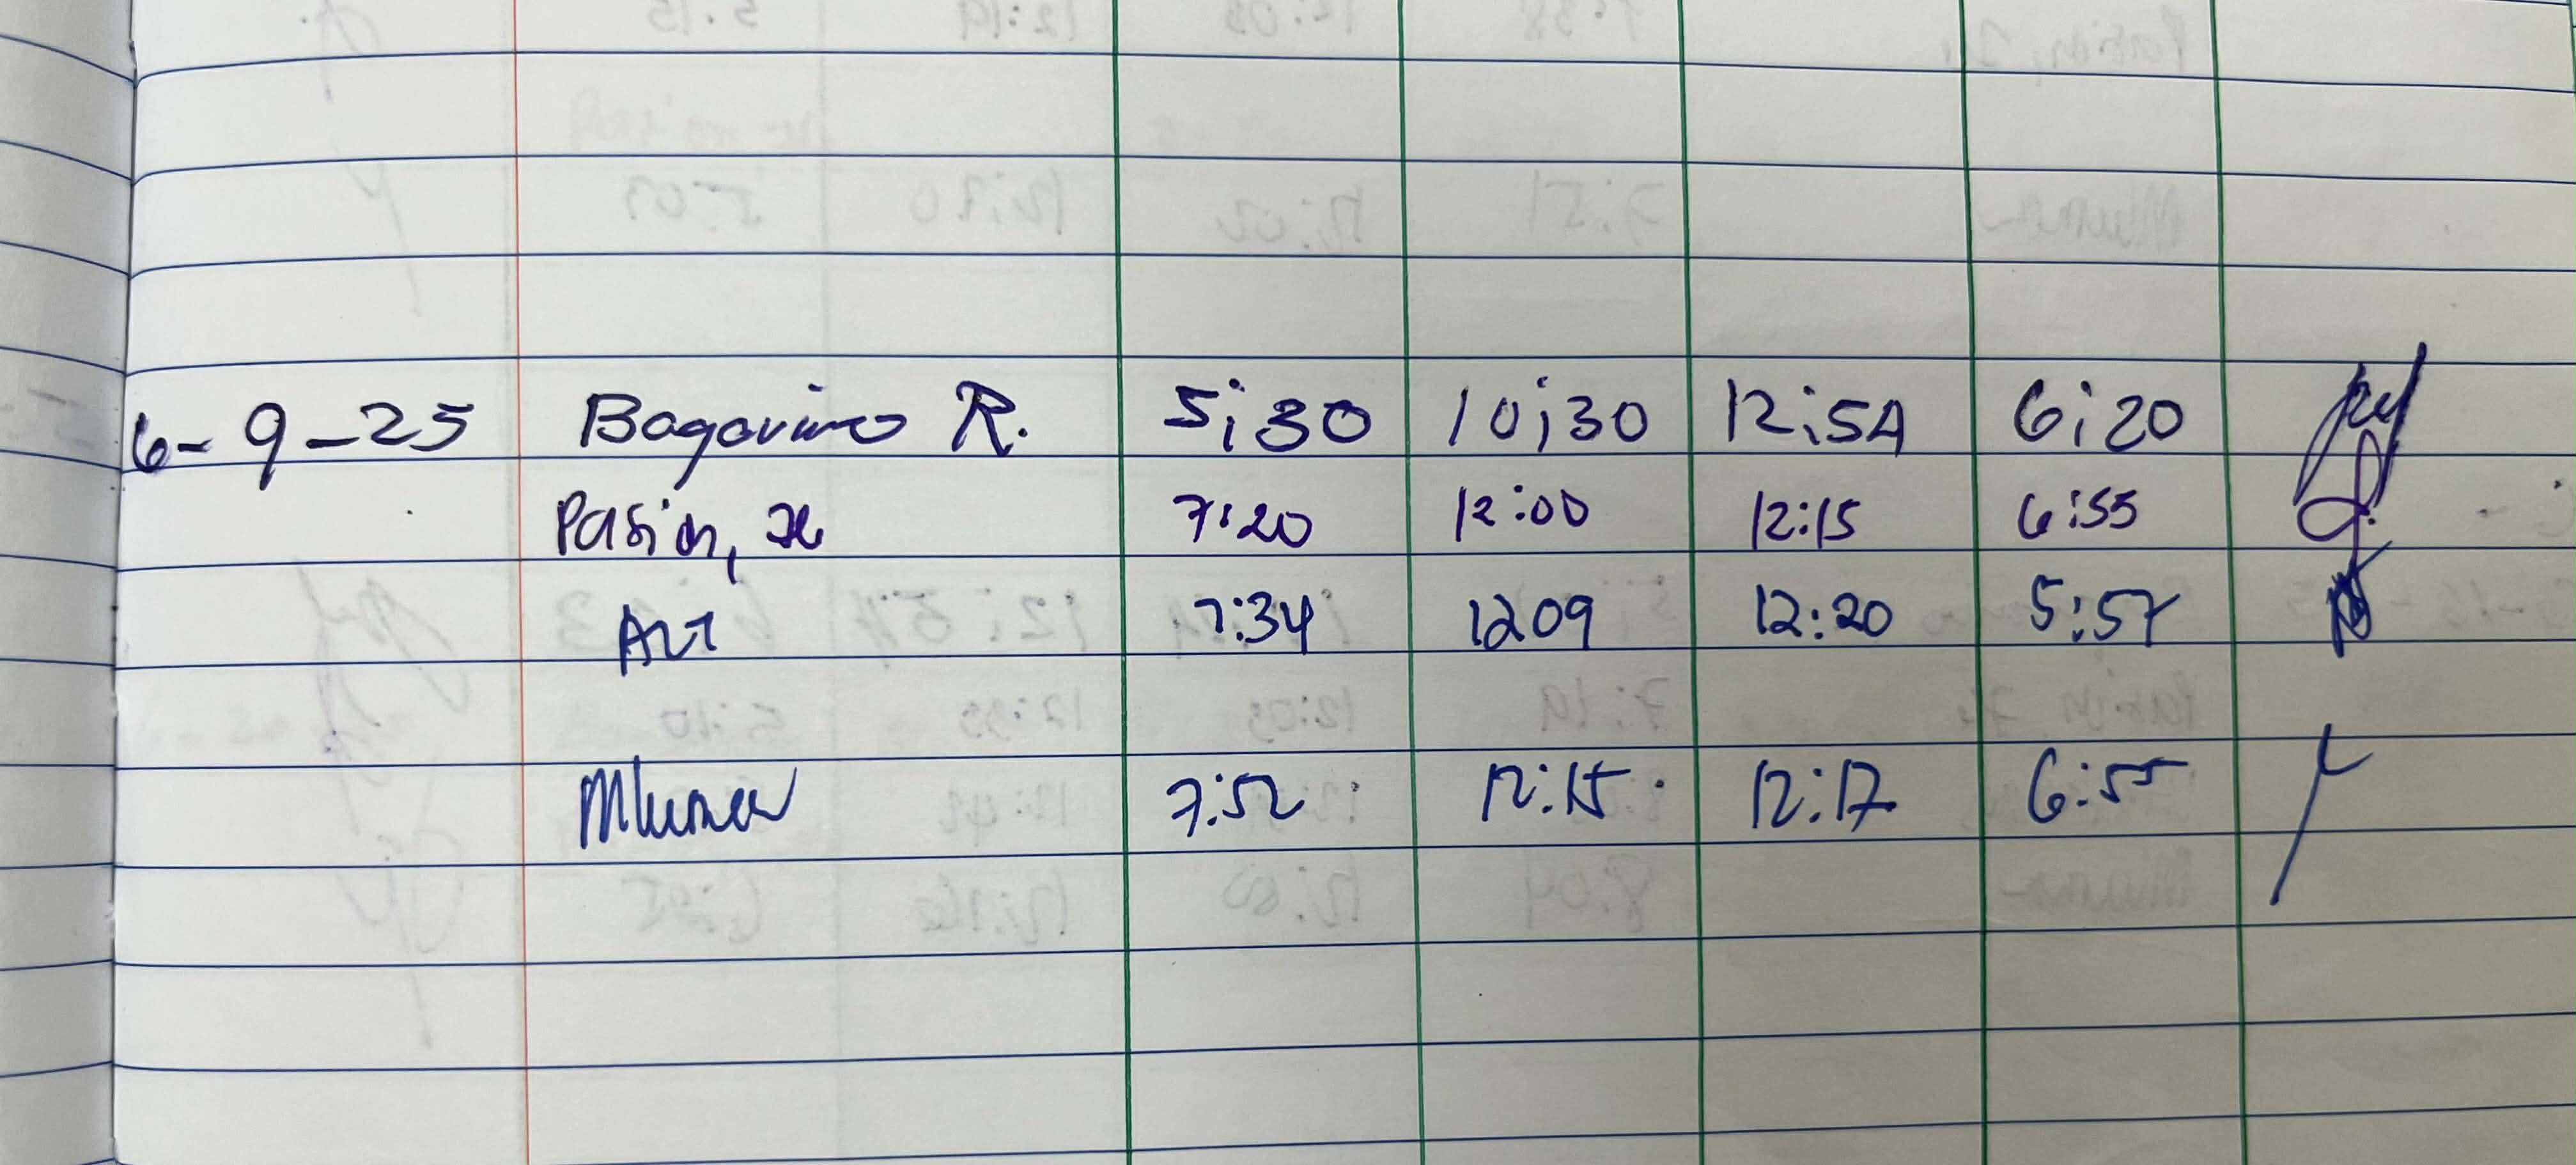 6-9-25 Bagarino R. 5:30 10:30 12:54 6:20
Pasin, 7:20 12:00 12:15 6:55
Art 7:34 1209 12:20 5:57
7:52 12:15 12:17 6:55